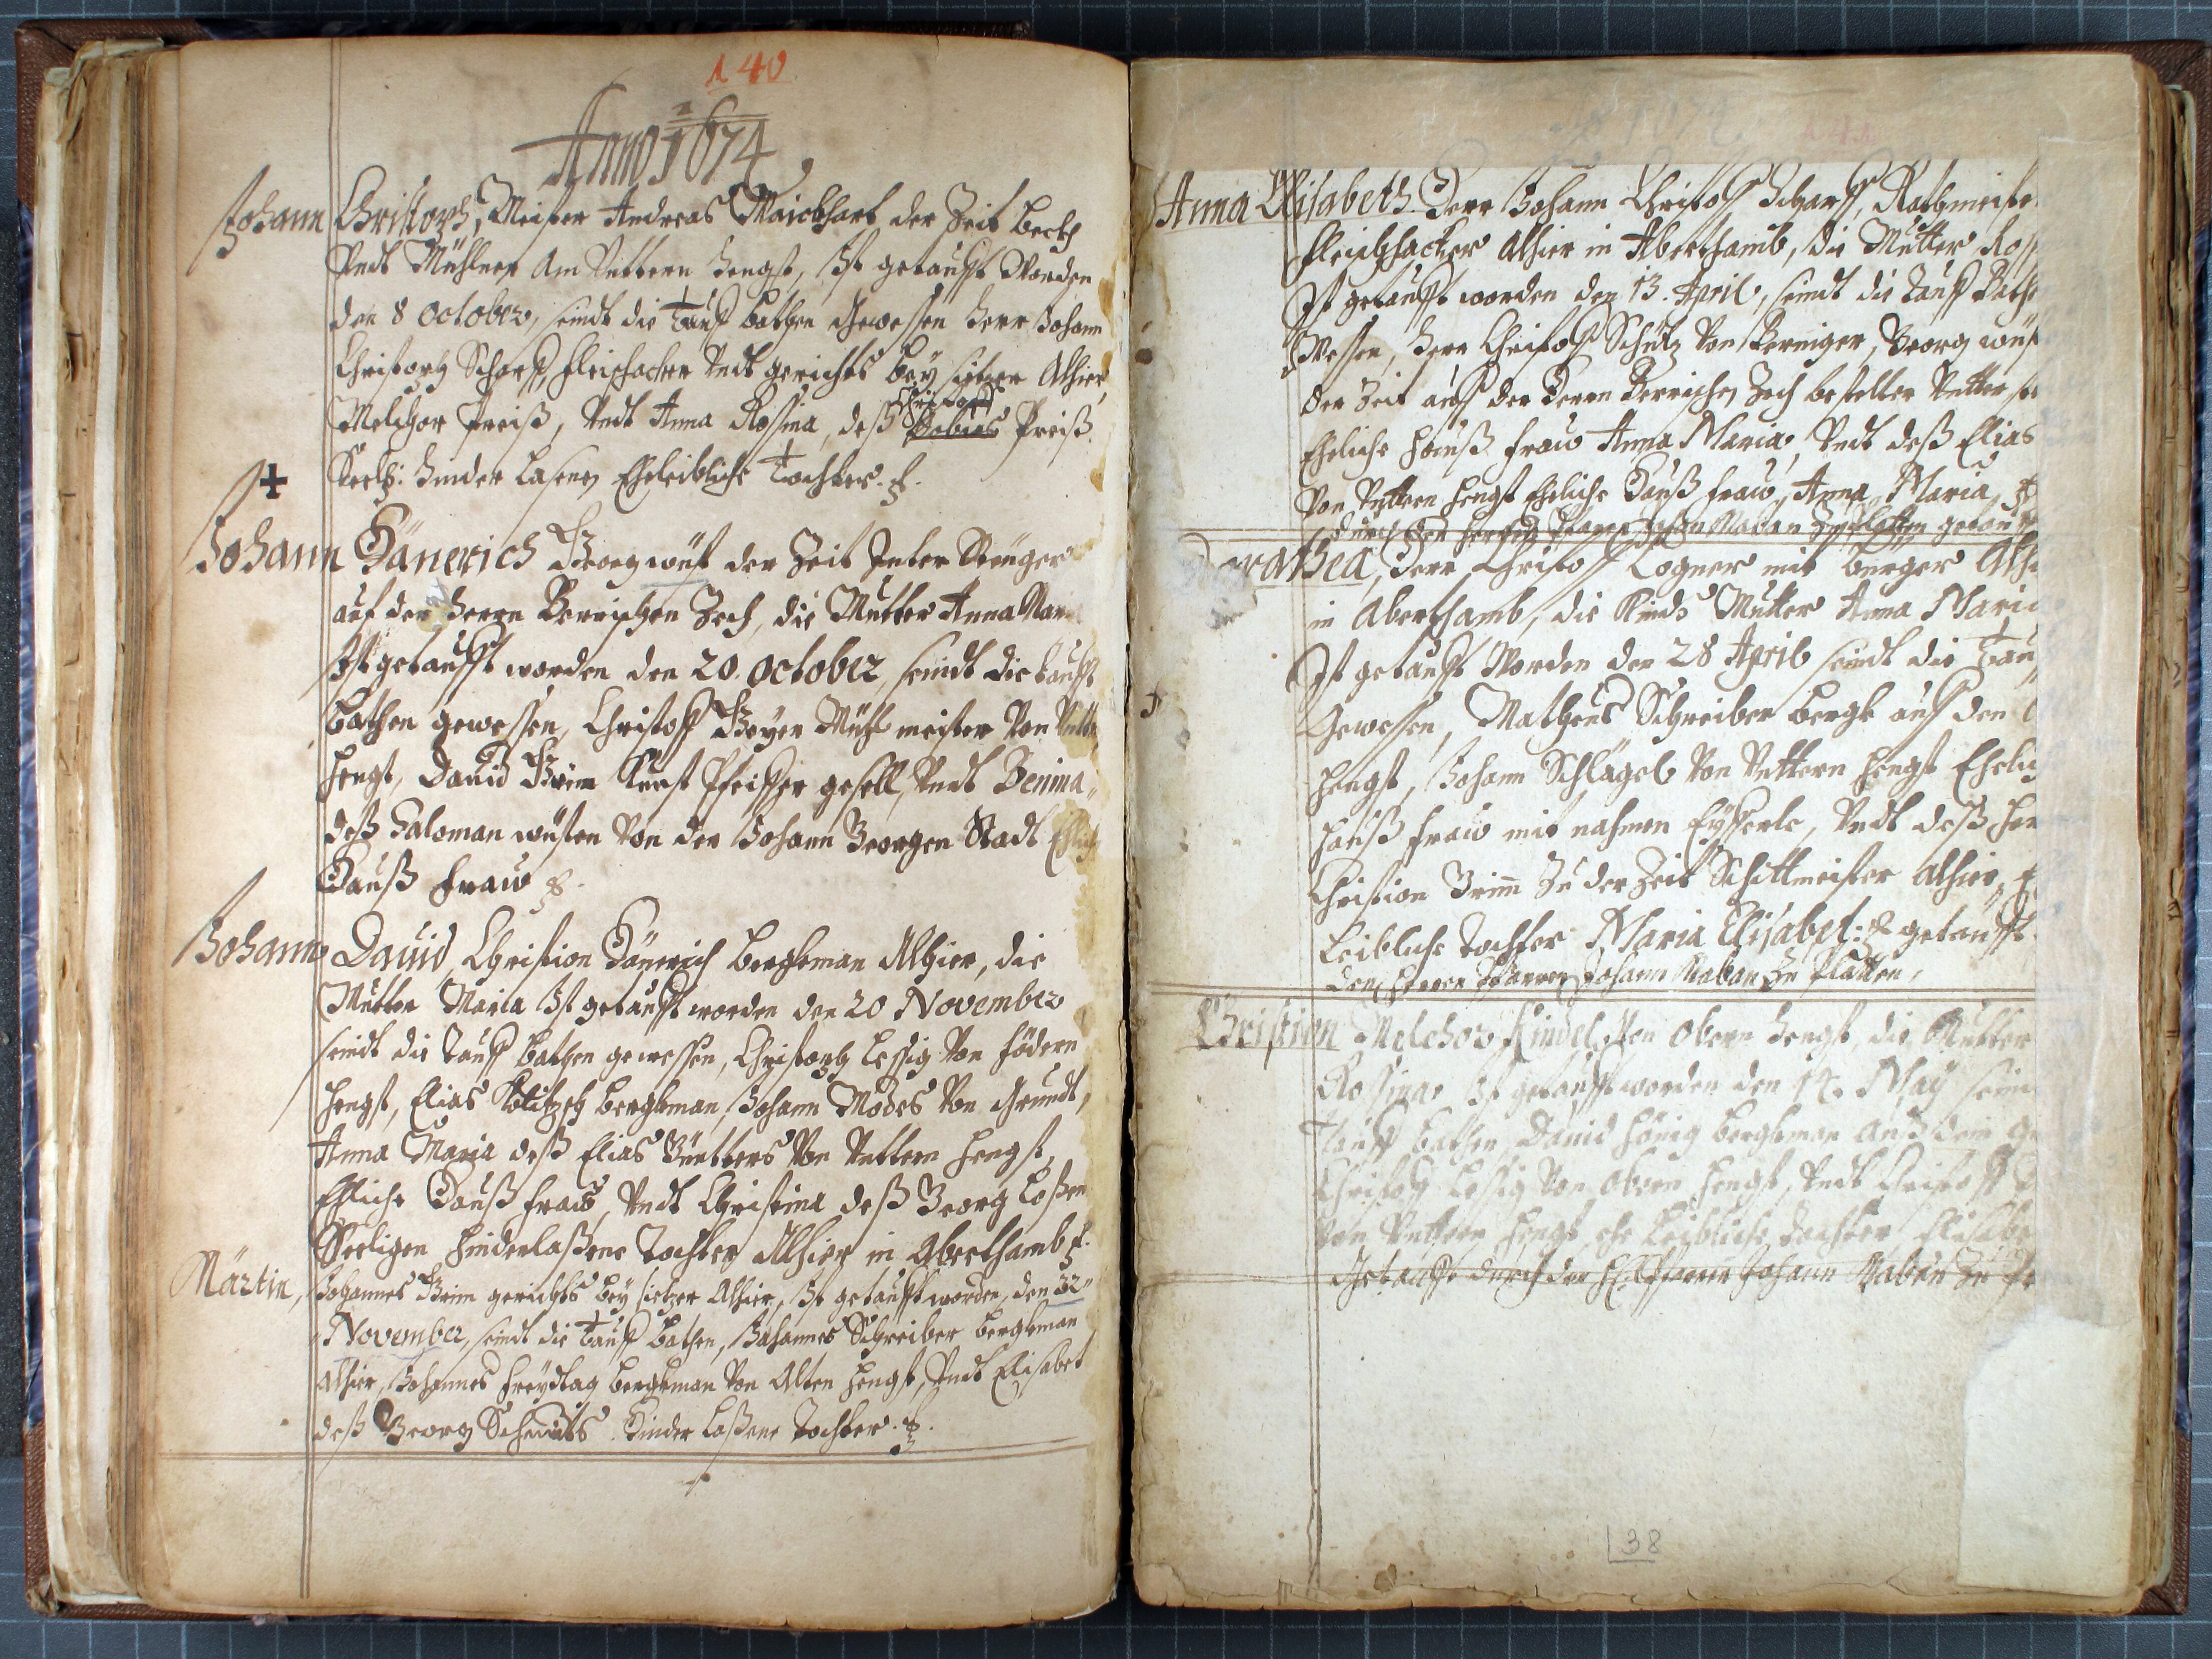 140
Anno 1674
Johann Christoph, Meister Andreas Maickhart der Zeit beckh
Vndt Mühlner Am Vnttern Hengst, Ist getaufft Worden
den 8 October, seindt die Tauf bathen Gewessen Herr Johann
Christoph Scharff, fleischacker Vndt gerichts beÿ sietzer Alhier
Christoff
Melchor Preiß, Vndt Anna Rossina, deß Tobias Preiß
hinder Lasene Eheleibliche Tochter
Johann Hänerich Georg wüst der Zeit Vnter Steüger
auf der Herrn Zech, die Mutter Anna Mari
Ist getaufft worden den 20. October, seindt die tauff
bathen gewessen, Christoff Beÿer Mühl meister Von Vntt
Hengst, Dauid Gesell, Vndt Benina
deß Saloman wüsten Von der Johann Georgen Stadt Ehlich
Hauß fraw
Johann Dauid, Christion Hänerich bergkman Alhier, die
Mutter Maria Ist getaufft worden den 20 November
seindt die Tauff bathen gewessen, Christoph Lessig Von födern
Hengst, Elias bergkman, Johann Modes Von Grundt,
Anna Maria deß Elias Von Vnttern Hengst,
Ehliche Hauß fraw, Vndt Christina deß Georg
Seeligen hinderlaßene Tochter Alhier in Aberthamb
Märtin, Johannes Grim gerichts beÿ sietzer Alhier, Ist getaufft worden, den 22
November, seindt die Tauff bathen, Johannes Schreiber bergkman
Alhier, Johannes freÿdtag bergkman Von Alten Hengst, Vndt Elisabet
deß Georg Schmits Hinder Laßene Tochter
141
Anna Elisabeth Herr Johann Christoff Scharff,
fleischhacker Alhier in Aberthamb, die Mutter Ros
Ist getaufft worden den 13. April, seindt die Tauff Pathe
Wessen, Herr Christoff Schütz Von Georg wüst
der Zeit auff der Herrn Zech bestelter Vntter
Eheliche Hauß fraw Anna Maria, Vndt deß Elias
Von Vnttern Hengst Eheliche Hauß fraw, Anna Maria
durch den Herren Johan Maban Zu Platten getau
Dorothea, Herr Christoff Logner mit burger Alhi
in Aberthamb, die Kinds Mutter Anna Maria
Ist getaufft Worden den 28 April seindt die Tau
Gewessen, Matheus Schreiber bergk auff den
Hengst, Johann Schlägel Von Vnttern Hengst Ehelig
Hauß fraw mit nahmen Vndt deß Her
Christion Grimm Zu der Zeit Schittmeister Alhier
Leibliche Tochter Maria Elisabet: getaufft
den Herren Pfarrer Johann Maban Zu Platten,
Christion Melchor Kindel Von Obern Hengst, die Mutter
Rossina Ist getaufft worden den 14. Maÿ sein
Tauff bathen, Dauid König bergkman auß dem
Christoph Lessig Von Obern Hengst, Vndt Christoff
Von Vnttern Hengst, ehe Leibliche Tochter Elisabe
Getaufft durch den H. Pfarrer Johann Maban Zu
138